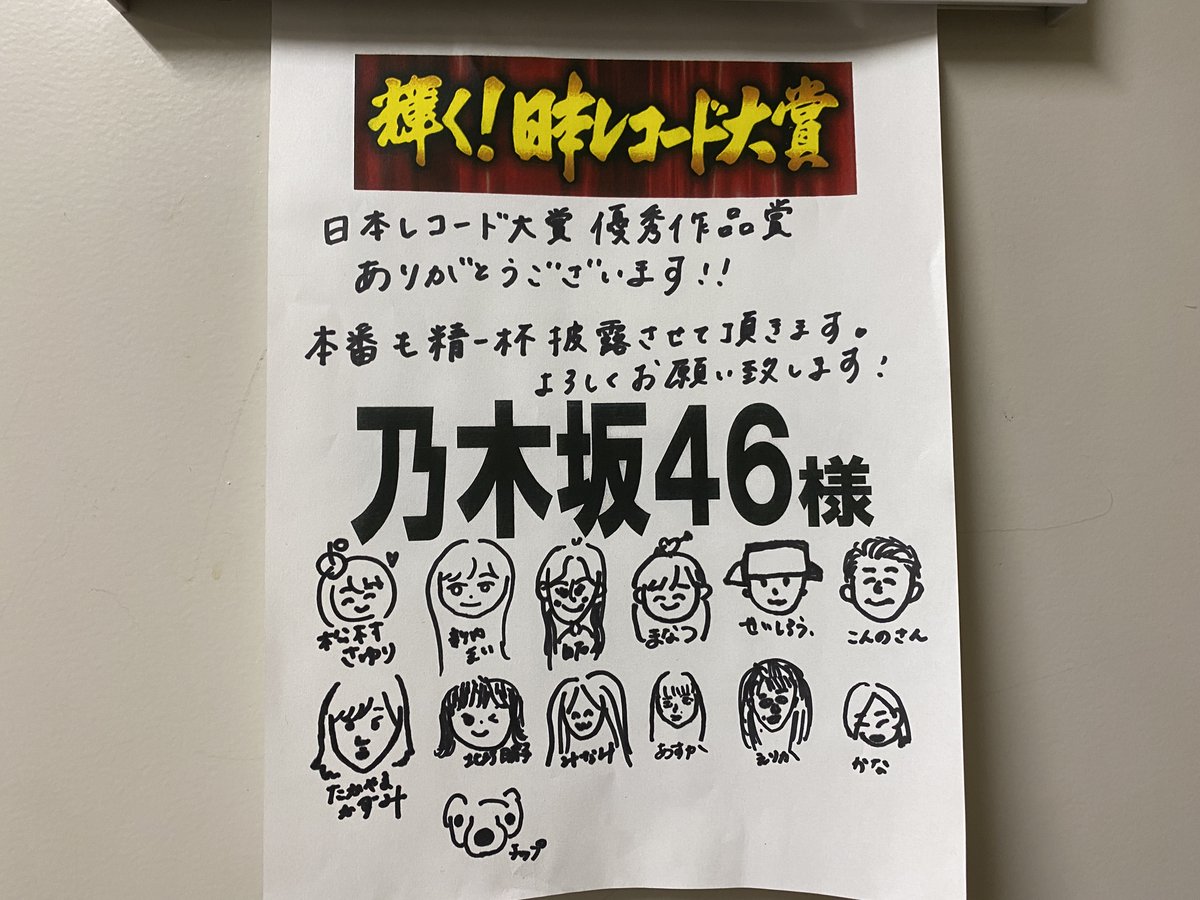 輝く!日本レコード大賞
日本レコード大賞 優秀作品賞
ありがとうございます!!
本番も精一杯披露させて頂きます。
よろしくお願い致します!
乃木坂46様
松村
さゆり
まい
まなつ
せいしろう、
こんのさん
たかやま
かずみ
北野日奈子
みなみ
あすか
えりか
かな
チップ